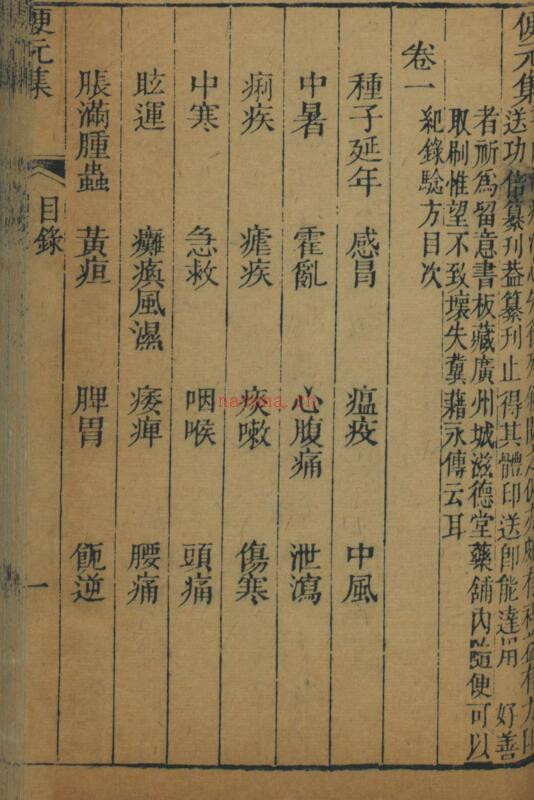 送功倍纂刊葢纂刊止得其體印送卽能達用 好善
者祈爲留意書板藏廣州城滋德堂藥舖內隨便可以
取刷惟望不致壞失冀藉永傳云耳
紀錄驗方目次
卷一
種子延年 感冒 瘟疫 中風
中暑 霍亂 心腹痛 泄瀉
痢疾 瘧疾 痰嗽 傷寒
中寒 急救 咽喉 頭痛
眩運 癱瘓風濕 痿痺 腰痛
脹滿腫蟲 黃疸 脾胃 呃逆
目錄 一
元集